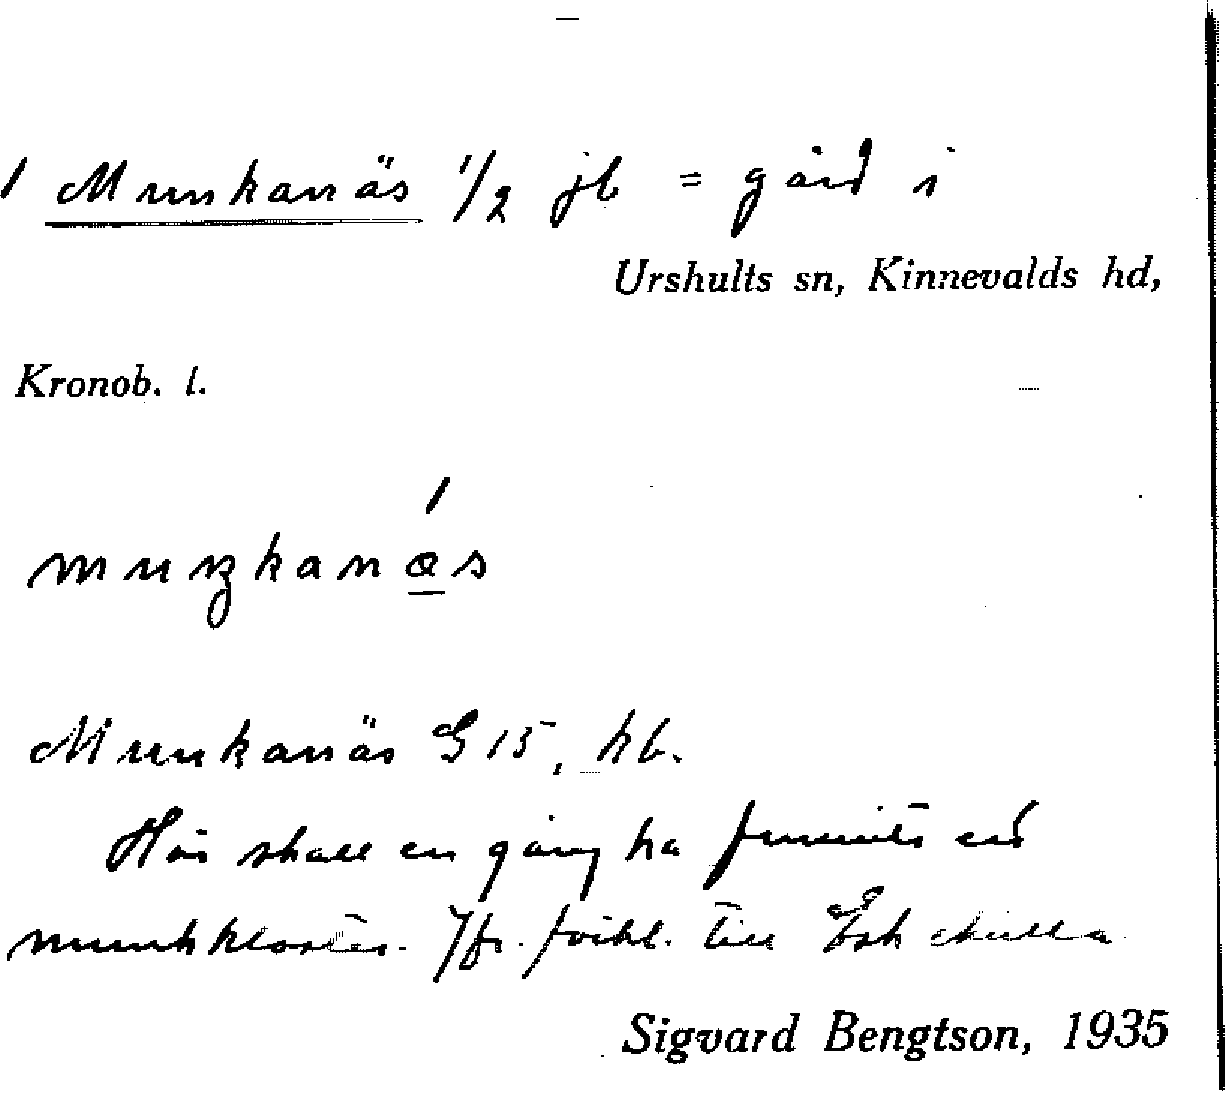 1 Munkanäs 1/2 jb = gård i
Urshults sn, Kinnevalds hd,
Kronob. l.
muŋkanǽ̲s
Munkanäs G 15, kb.
Här skall en gång ha funnits ett
munkkloster. Jfr. förkl. till
Sigvard Bengtson, 1935